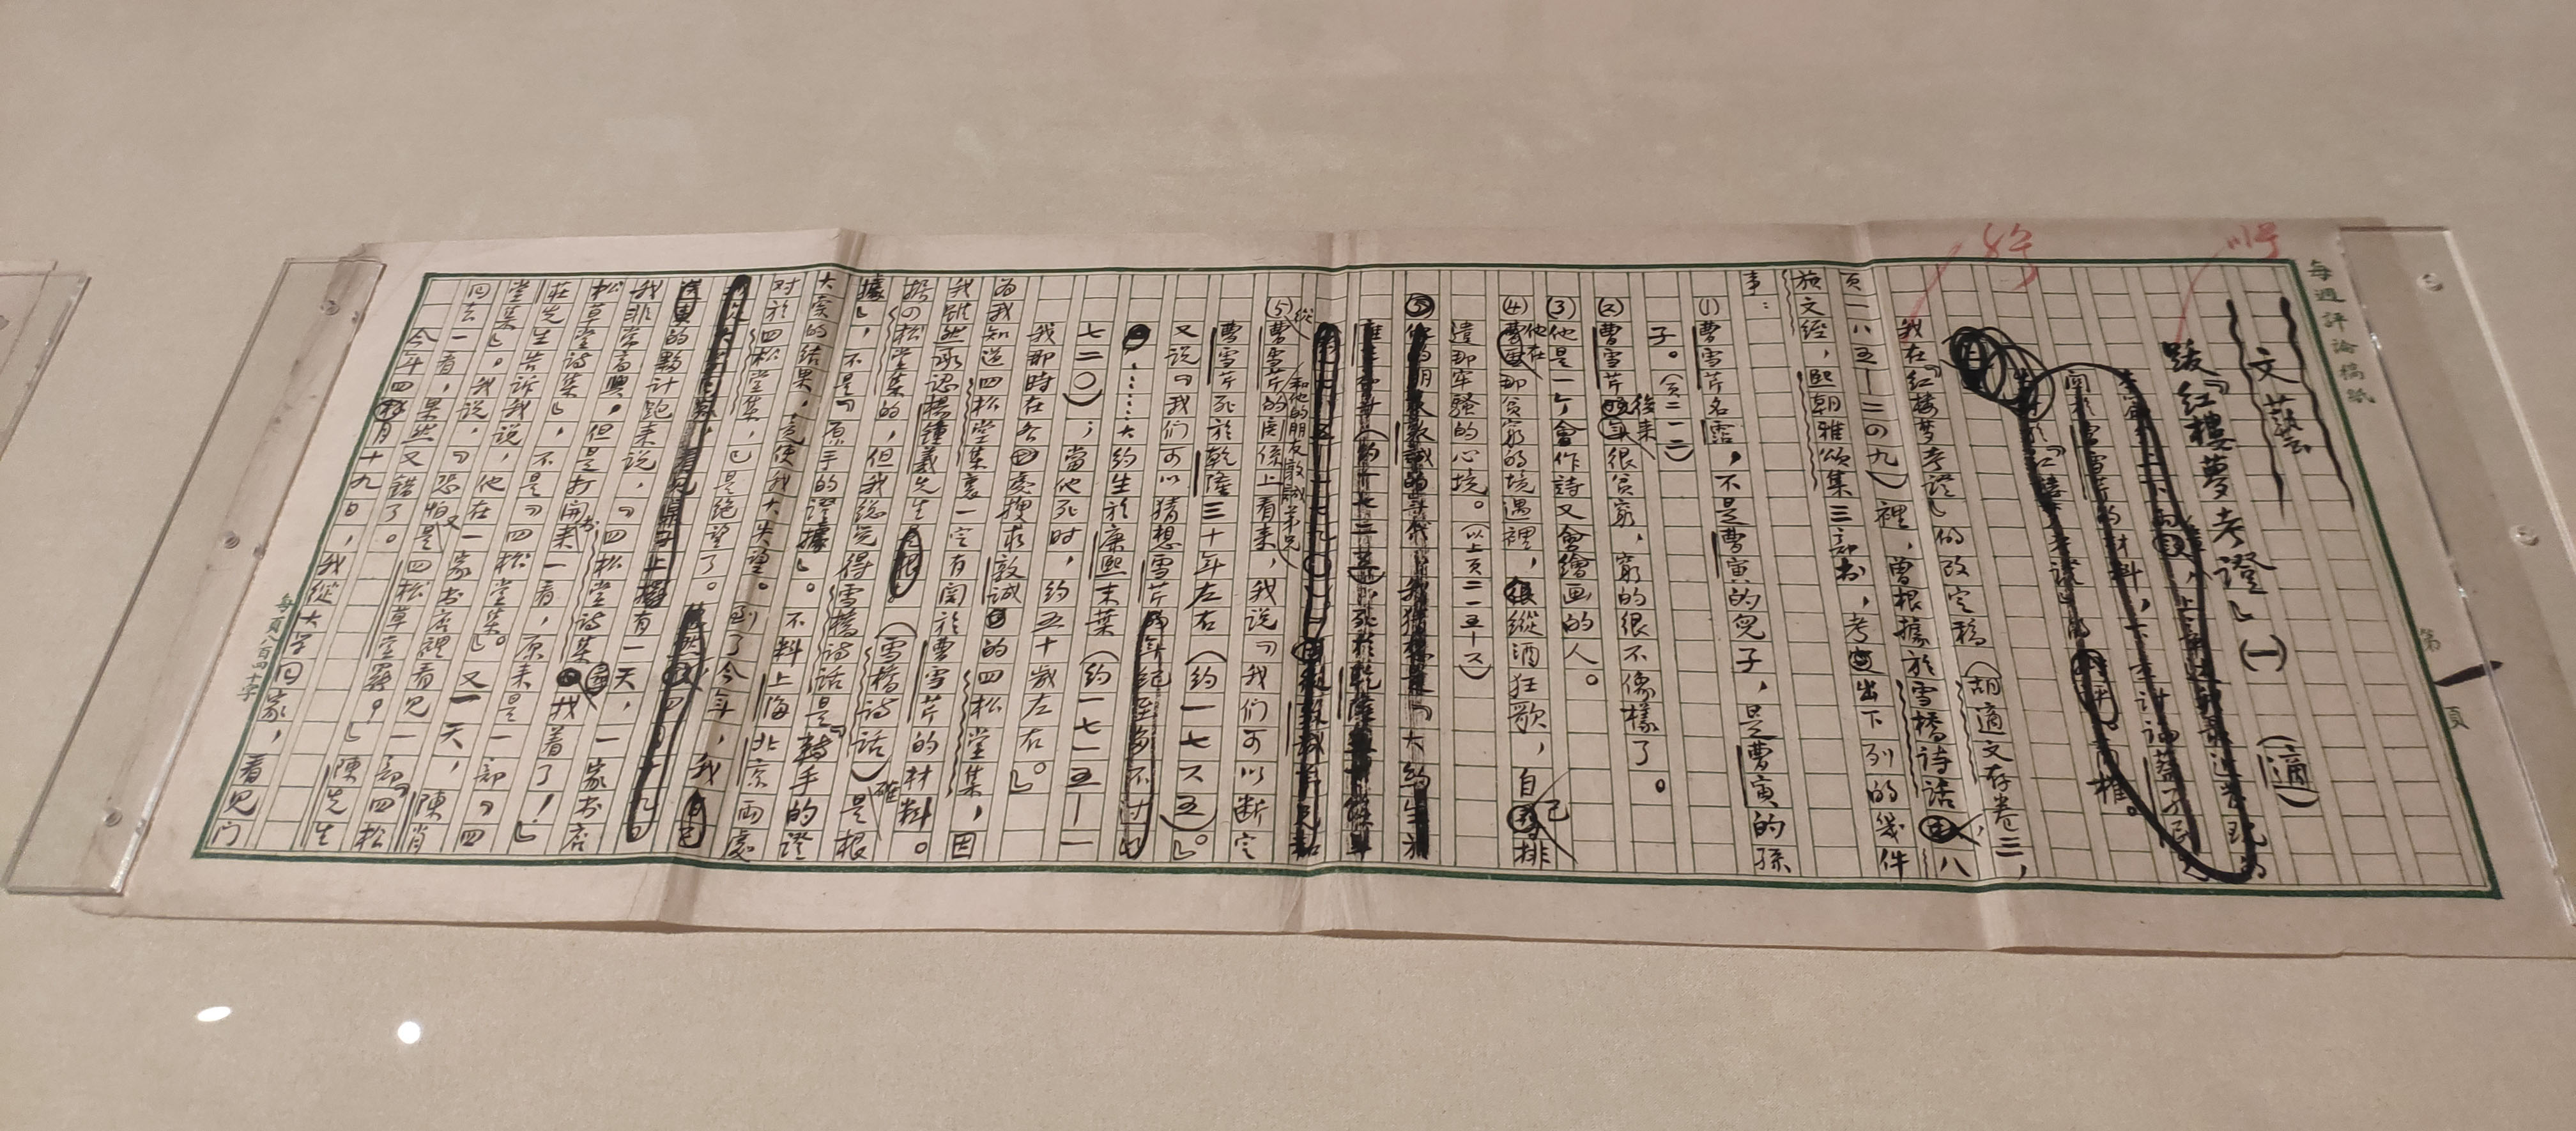 每週評論稿紙
第一頁
文藝
跋『紅樓夢考證』(一)　(適)
我在『紅樓夢考證』的改定稿(胡適文存卷三,
頁一八五—二四九)裡,曾根據於雪橋詩話,八
旗文經,熙朝雅頌集三部书,考出下列的幾件
事:
(1)曹雪芹名霑,不是曹寅的兒子,是曹寅的孫
子。(頁二一二)
(2)曹雪芹後来很貧窮,窮的很不像樣了。
(3)他是一个會作詩又會繪画的人。
(4)他在那貧窮的境遇裡,縱酒狂歌,自己排
遣那牢騷的心境。(以上頁二一五—六)
(5)從曹雪芹和他的朋友敦誠弟兄的関係上看来,我说『我们可以断定
曹雪芹死於乾隆三十年左右(約一七六五)。』
又说『我们可以猜想雪芹
……大約生於康熙末葉(約一七一五—一
七二〇);當他死时,約五十歲左右。』
我那時在各處搜求敦誠的四松堂集,因
为我知道四松堂集裏一定有関於曹雪芹的材料。
我雖然承認楊鍾羲先生(雪橋詩話)確是根
據四松堂集的,但我總覺得雪橋詩話是『轉手的證
據』,不是『原手的證據』。不料上海北京兩處
大索的结果,竟使我大失望。到了今年,我
对於四松堂集,已是絶望了。有一天,一家书店
的夥计跑来说,『四松堂詩集找着了!』
我非常高興,但是打開书来一看,原来是一部『四
松草堂詩集』,不是『四松堂集』。又一天,陳肖
莊先生告訴我说,他在一家书店裡看見一部『四松
堂集』。我说,『恐怕又是四松草堂罷?』陳先生
回去一看,果然又錯了。
今年四月十九日,我從大学回家,看見门
每頁八百四十字